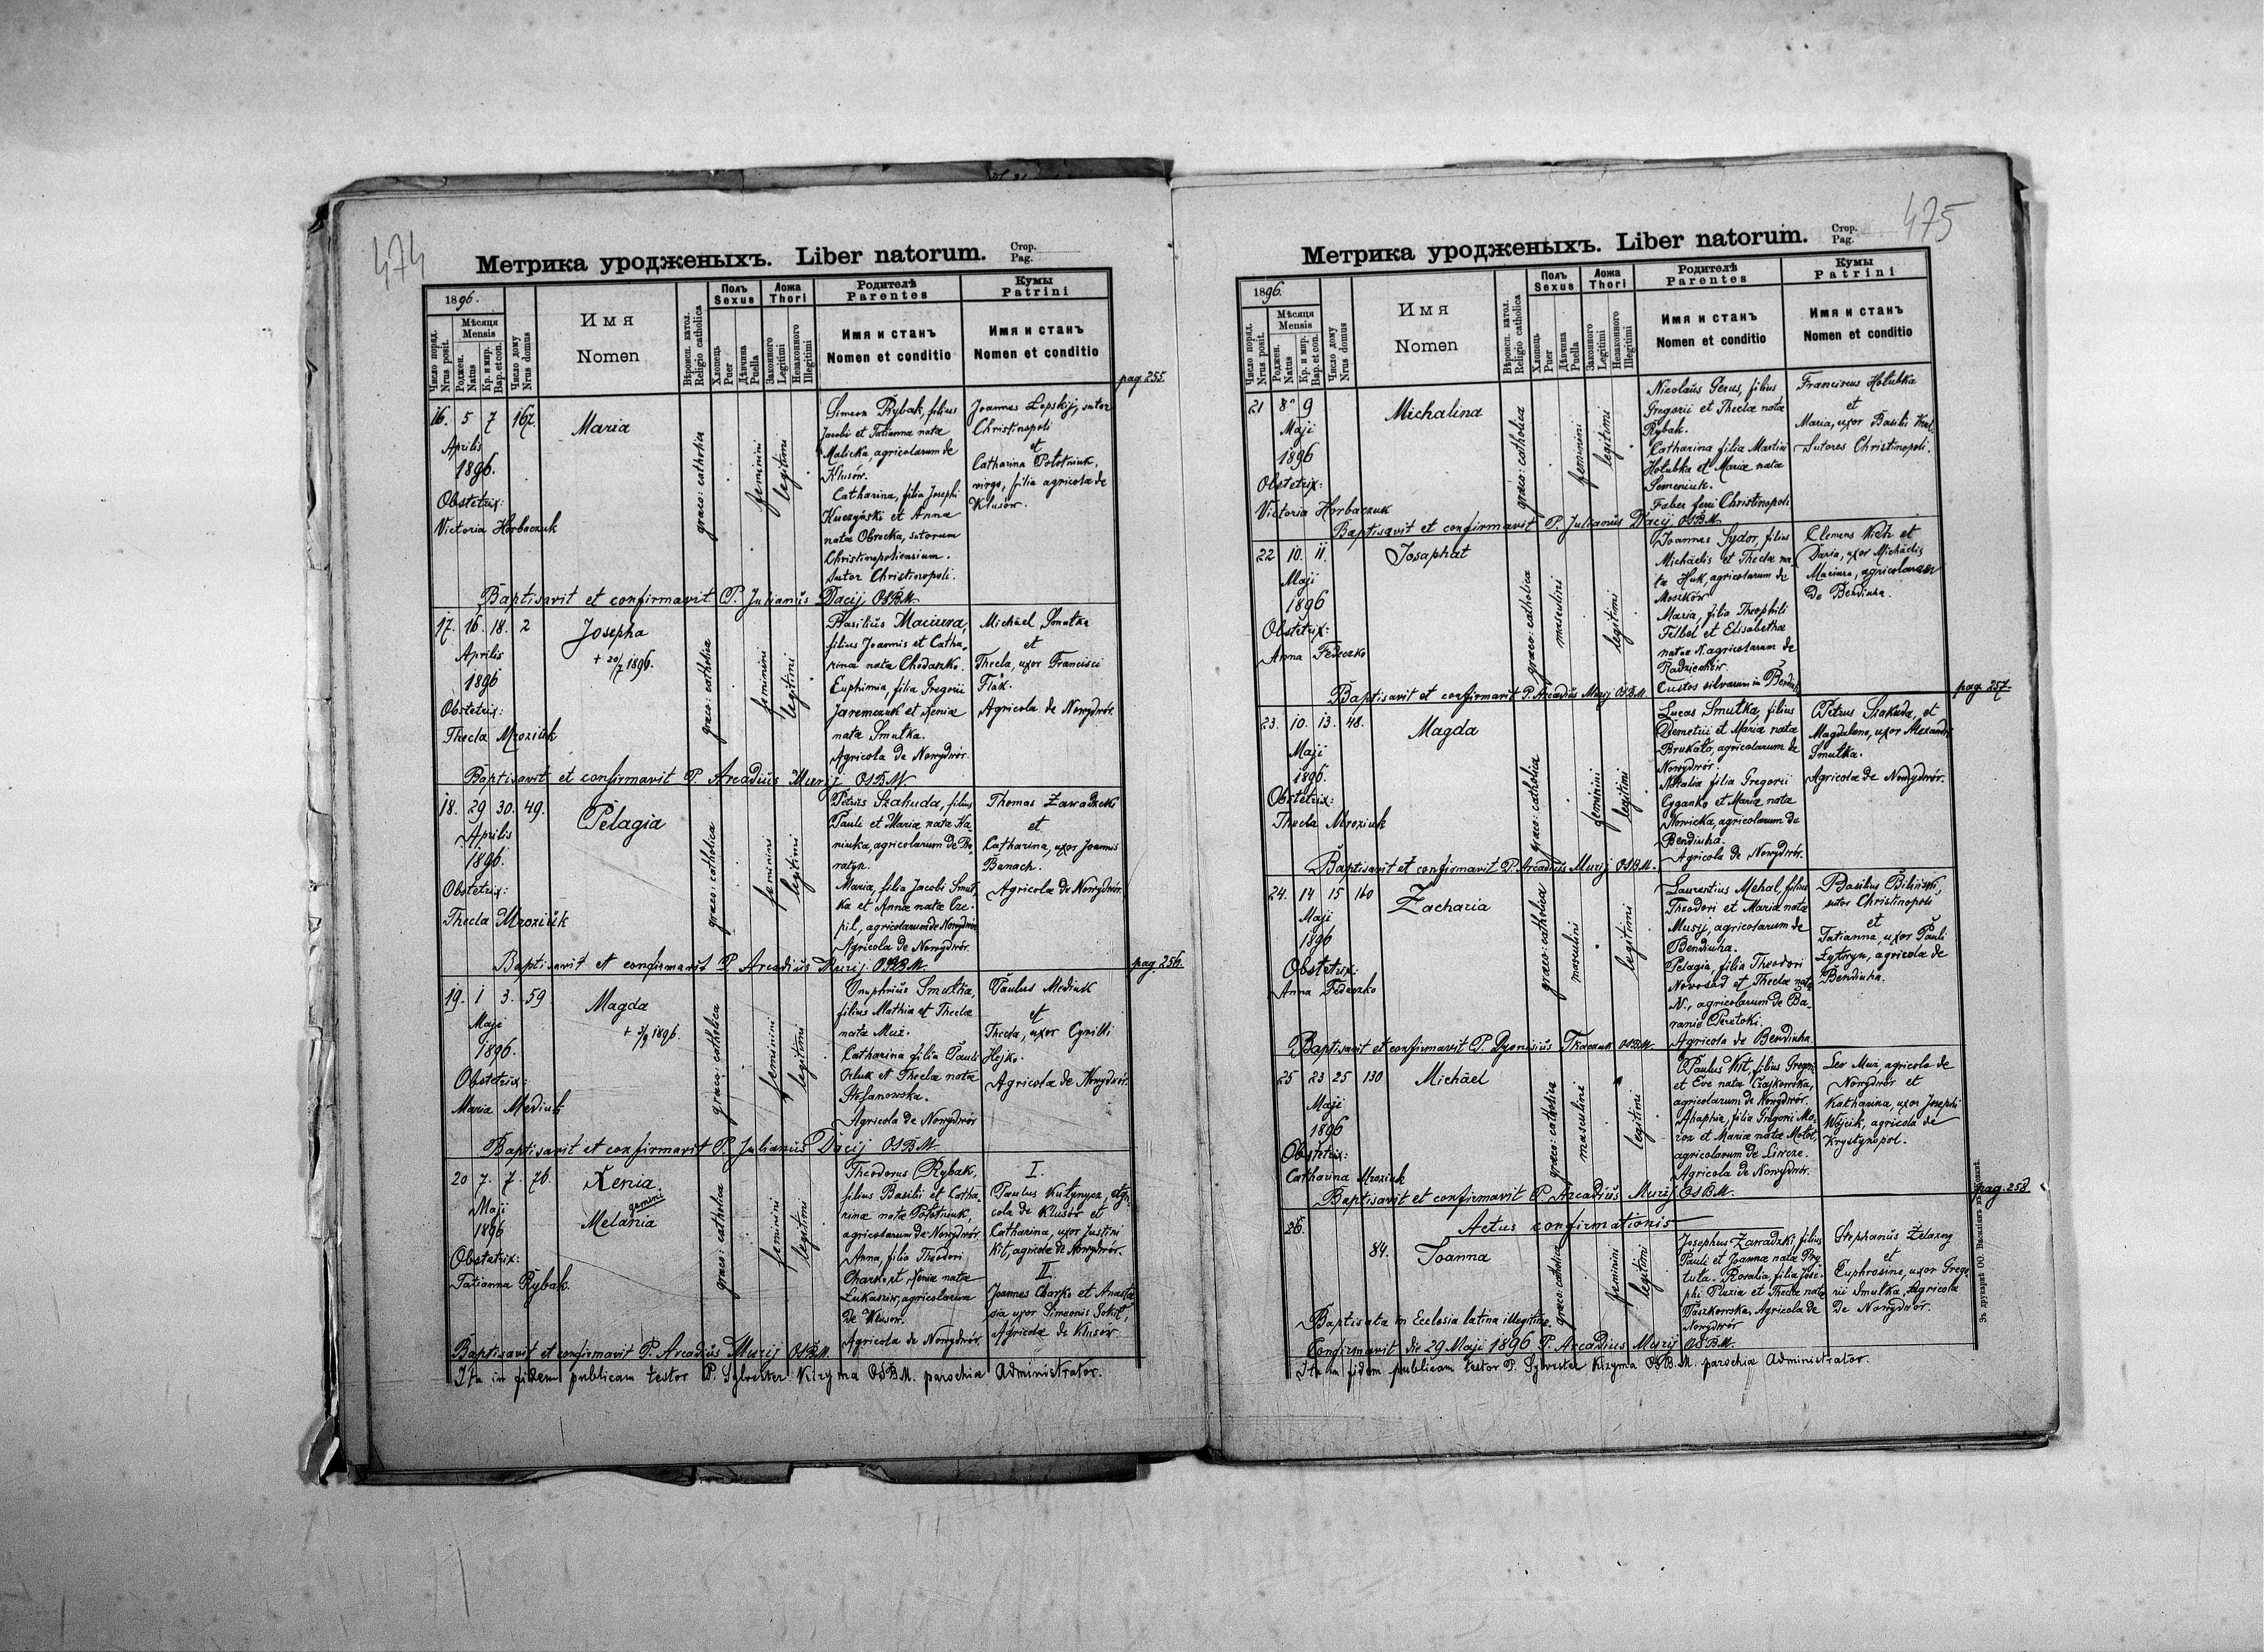 474
Метрика уродженыхъ. Liber natorum.
Стор.
Pag.
1896.
Число поряд.
Nrus posit.
Мѣсяця
Mensis
Роджен.
Natus
Кр. и мир.
Bap. et con.
Число дому
Nrus domus
Имя
Nomen
Вѣроисп. катол.
Religio catholica
Полъ
Sexus
Хлопець
Puer
Дѣвчина
Puella
Ложа
Thori
Законного
Legitimi
Незаконного
Illegitimi
Родителѣ
Parentes
Имя и станъ
Nomen et conditio
Кумы
Patrini
Имя и станъ
Nomen et conditio
pag 255.
16. 5 7 167.
Aprilis
1896.
Obstetrix:
Victoria Horbaczuk
Maria
graeco: catholica
feminini
legitimi
Simeon Rybak, filius
Jacobi et Tatianna nata
Malicka, agricolarum de
Klusów.
Catharina, filia Josephi
Kuczyński et Anna
nata Obrocka, sutorum
Christinopoliensium.
Sutor Christinopoli.
Joannes Lepskij, sutor
Christinopoli
et
Catharina Połotniuk,
virgo, filia agricolæ de
Klusów.
Baptisavit et confirmavit P. Julianus Dacij OSBM.
17. 16. 18. 2
Aprilis
1896
Obstetrix:
Thecla Mroziuk
Josepha
+ 20/7 1896.
graeco: catholica
feminini
legitimi
Basilius Maciura,
filius Joannis et Catha-
rina nata Chodaczko.
Euphimia, filia Gregorii
Jaremczuk et Xeniæ
nata Smutka.
Agricola de Nowydwór.
Michäel Smutka
et
Thecla, uxor Francisci
Flak.
Agricolæ de Nowydwór.
Baptisavit et confirmavit P. Arcadius Muzij OSBM.
18. 29 30. 49.
Aprilis
1896.
Obstetrix:
Thecla Mroziuk
Pelagia
graeco: catholica
feminini
legitimi
Petrus Skakuda, filius
Pauli et Mariæ nata Ha-
niuka, agricolarum de Bo-
ratyn.
Maria, filia Jacobi Smut-
ka et Annæ natæ Cze-
pil, agricolarum de Nowydwór
Agricola de Nowydwór.
Thomas Zawadzki
et
Catharina, uxor Joannis
Banach.
Agricolæ de Nowydwór.
Baptisavit et confirmavit P. Arcadius Muzij OSBM.
pag 256.
19. 1 3. 59
Maji
1896.
Obstetrix:
Maria Mediuk
Magda
+ 3/9 1896.
graeco: catholica
feminini
legitimi
Onuphrius Smutka,
filius Mathiæ et Theclæ
natæ Muż.
Catharina filia Pauli
Orluk et Theclæ nata
Stefanowska.
Agricola de Nowydwór
Paulus Mediuk
et
Thecla, uxor Cyrilli
Hejko.
Agricolæ de Nowydwór.
Baptisavit et confirmavit P. Julianus Dacij OSBM.
20 7. 7. 76.
Maji
1896
Obstetrix:
Tatianna Rybak.
Xenia
gemini
Melania
graeco: catholica
feminini
legitimi
Theodorus Rybak,
filius Basilii et Catha-
rinæ nata Połotniuk,
agricolarum de Nowydwór.
Anna, filia Theodori
Charko et Xeniæ nata
Lukasziw, agricolarum
de Klusów.
Agricola de Nowydwór.
I.
Paulus Kutynycz, agri-
cola de Klusów et
Catharina, uxor Justini
Kit, agricolæ de Nowydwór.
II.
Joannes Charko et Anasta-
sia uxor Simeonis Sokoł,
Agricolæ de Klusów.
Baptisavit et confirmavit P. Arcadius Muzij OSBM.
Ita in fidem publicam testor P. Sylvester Kizyma OSBM. parochiæ Administrator.
475
Метрика уродженыхъ. Liber natorum.
Стор.
Pag.
1896.
Число поряд.
Nrus posit.
Мѣсяця
Mensis
Роджен.
Natus
Кр. и мир.
Bap. et con.
Число дому
Nrus domus
Имя
Nomen
Вѣроисп. катол.
Religio catholica
Полъ
Sexus
Хлопець
Puer
Дѣвчина
Puella
Ложа
Thori
Законного
Legitimi
Незаконного
Illegitimi
Родителѣ
Parentes
Имя и станъ
Nomen et conditio
Кумы
Patrini
Имя и станъ
Nomen et conditio
21 8 9
Maji
1896
Obstetrix:
Victoria Horbaczuk
Michalina
graeco: catholica
feminini
legitimi
Nicolaüs Gerus, filius
Gregorii et Theclæ natæ
Rybak.
Catharina filia Martini
Hołubka et Mariæ nata
Semeniuk.
Faber ferri Christinopoli
Franciscus Hołubka
et
Maria, uxor Basilii
Sutores Christinopoli.
Baptisavit et confirmavit P. Julianus Dacij OSBM.
22 10. 11.
Maji
1896
Obstetrix:
Anna Fedeczko
Josaphat
graeco: catholica
masculini
legitimi
Joannes Sydor, filius
Michäelis et Theclæ na-
tæ Huk, agricolarum de
Moszków
Maria, filia Theophili
Felbel et Elisabethæ
natæ N. agricolarum de
Radziechów.
Custos silvarum in
Clemens Kich et
Daria, uxor Michäelis
Maciura, agricolarum
de Bendiuha.
Baptisavit et confirmavit P. Arcadius Muzij OSBM.
pag. 257.
23. 10. 13. 48.
Maji
1896.
Obstetrix:
Thecla Mroziuk
Magda
graeco: catholica
feminini
legitimi
Lucas Smutka, filius
Demetrii et Mariæ natæ
Brukato, agricolarum de
Nowydwór.
Natalia filia Gregorii
Cyganko et Mariæ natæ
Nowicka, agricolarum de
Bendiuha.
Agricola de Nowydwór.
Petrus Skakuda, et
Magdalena, uxor Alexandri
Smutka.
Agricolæ de Nowydwór.
Baptisavit et confirmavit P. Arcadius Muzij OSBM.
24. 14 15 160
Maji
1896
Obstetrix:
Anna Fedeczko
Zacharia
graeco: catholica
masculini
legitimi
Laurentius Mehal, filius
Theodori et Mariæ nata
Musij, agricolarum de
Bendiuha.
Pelagia, filia Theodori
Novosad et Theclæ nata
N., agricolarum de Ba-
ranie Peretoki.
Agricola de Bendiuha.
Basilius Biliński,
sutor Christinopoli
et
Tatianna, uxor Pauli
agricolæ de
Bendiuha.
Baptisavit et confirmavit P. Dyonisius Tkaczuk OSBM.
25 23 25 130
Maji
1896
Obstetrix:
Catharina Mroziuk
Michäel
graeco: catholica
masculini
legitimi
Paulus Kit, filius Gregorii
et Eve nata Czajkowska,
agricolarum de Nowydwór.
Ahaphia, filia Gregorii Mo-
roz et Mariæ natæ Mołot,
agricolarum de Liwcze.
Agricola de Nowydwór.
Leo Muz, agricola de
Nowydwór et
Katharina, uxor Josephi
Wójcik, agricolæ de
Krystynopol.
Baptisavit et confirmavit P. Arcadius Muzij OSBM.
pag. 258
26.
Actus confirmationis
84.
Joanna
graeco: catholica
feminini
legitimi
Josephus Zawadzki, filius
Pauli et Joannæ natæ Pry-
tuła. Rosalia, filia Jose-
phi Pluzia et Theclæ nata
Paszkowska, Agricola de
Nowydwór
Stephanus Żelazny
et
Euphrosine, uxor Grego-
rii Smutka, Agricolæ
de Nowydwór.
Baptisata in Ecclesia latina illegitime.
Confirmavit die 29 Maji 1896 P. Arcadius Muzij OSBM.
Ita in fidem publicam testor P. Sylvester Kizyma OSBM. parochiæ Administrator.